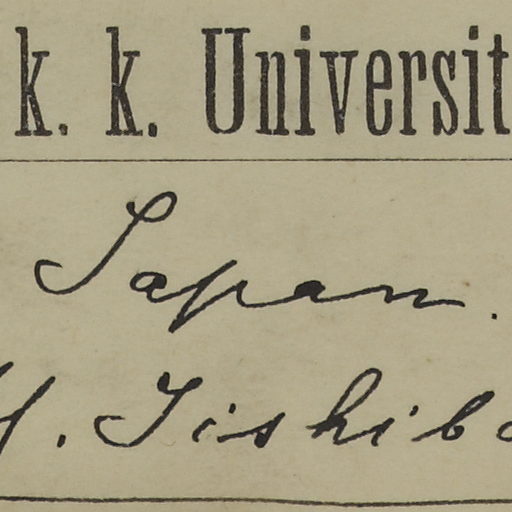 k. k. Universit
Japan.
. Jishiba